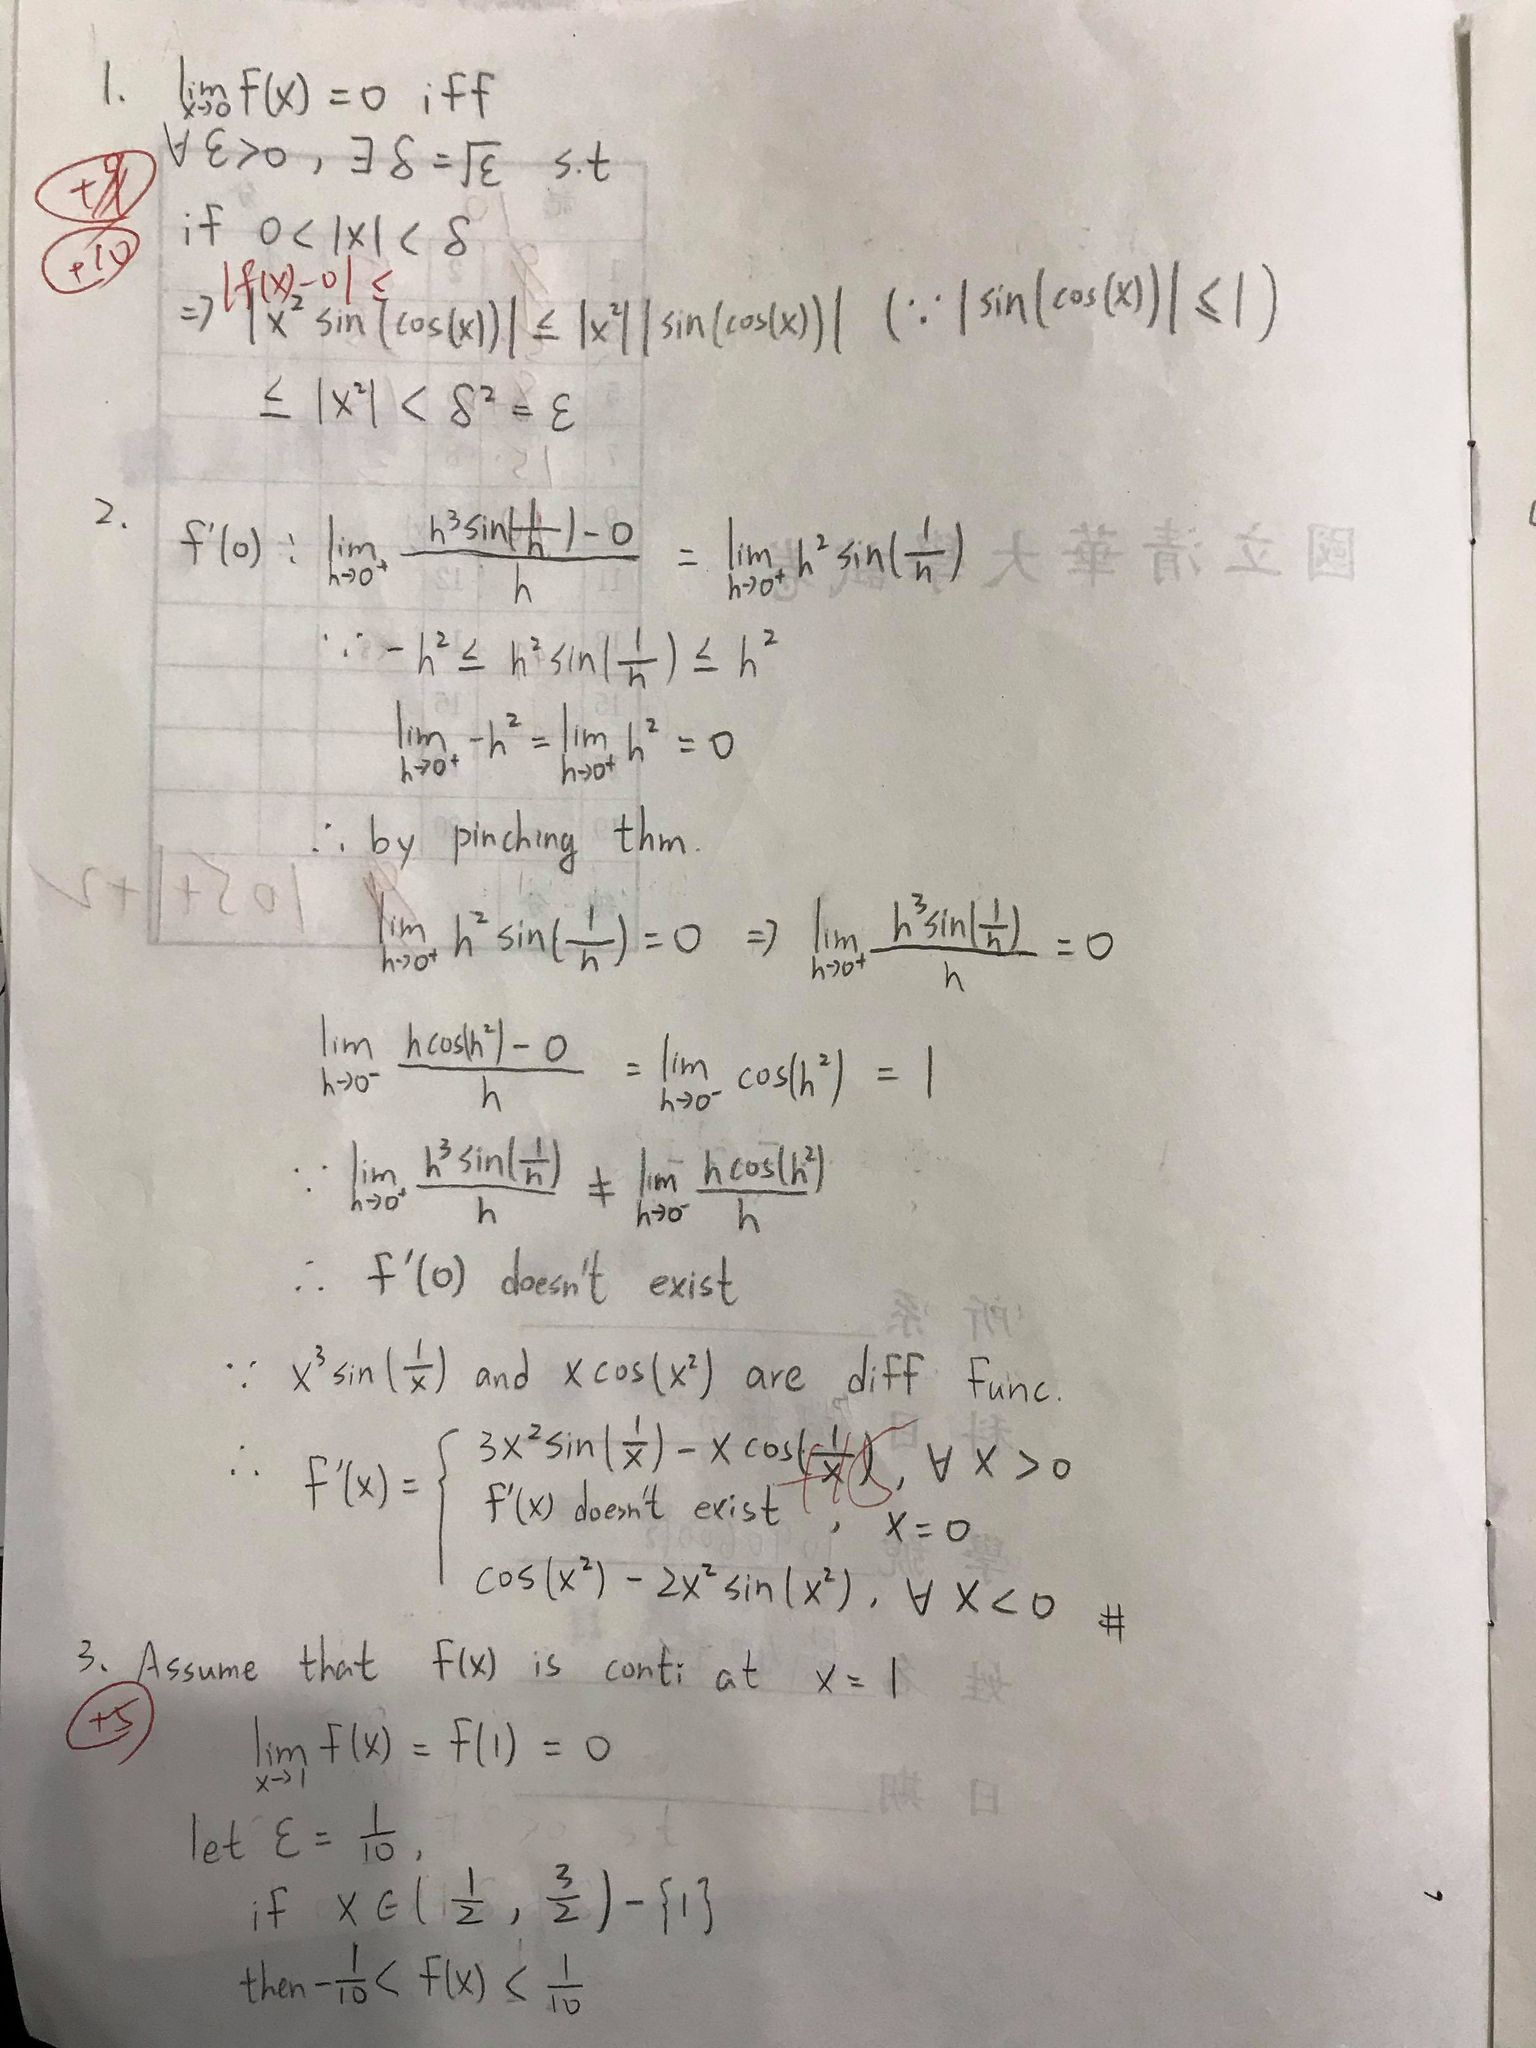 1. lim x→0 f(x) = 0 iff
∀ ε>0, ∃ δ=√ε s.t
+9
if 0<|x|<δ
+10
|f(x)-0| ≤
⇒ |x² sin(cos(x))| ≤ |x²||sin(cos(x))| (∵ |sin(cos(x))| ≤ 1)
≤ |x²| < δ² = ε
2. f'(0) : lim h→0⁺ (h³sin(1/h) - 0)/h = lim h→0⁺ h² sin(1/h)
國立清華大學試卷
∵ -h² ≤ h² sin(1/h) ≤ h²
lim h→0⁺ -h² = lim h→0⁺ h² = 0
∴ by pinching thm.
105+1+2
lim h→0⁺ h² sin(1/h) = 0 ⇒ lim h→0⁺ h³sin(1/h)/h = 0
lim h→0⁻ (h cos(h²) - 0)/h = lim h→0⁻ cos(h²) = 1
∵ lim h→0⁺ h³sin(1/h)/h ≠ lim h→0⁻ h cos(h²)/h
∴ f'(0) doesn't exist
所系
∵ x³sin(1/x) and x cos(x²) are diff func.
科目
∴ f'(x) = { 3x²sin(1/x) - x cos(1/x), ∀ x>0
f'(x) doesn't exist, x=0
學號
cos(x²) - 2x² sin(x²), ∀ x<0 #
3. Assume that f(x) is conti at x=1
姓名
+5
lim x→1 f(x) = f(1) = 0
日期
let ε = 1/10,
if x∈(1/2, 3/2) - {1}
then -1/10 < f(x) < 1/10